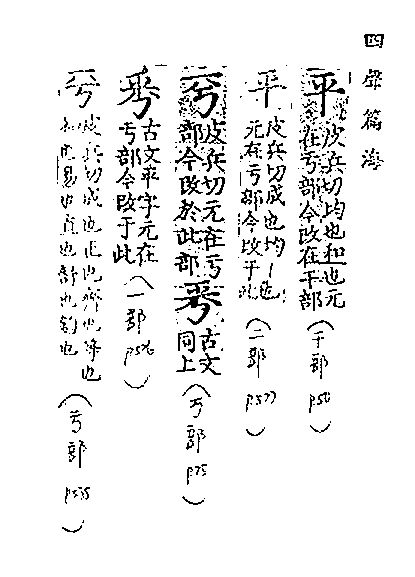 四聲篇海
平 皮兵切均也和也元
在亏部今改在干部
(干部 p58)
平 皮兵切成也均一也
元在亏部今改于此
(二部 p577)
皮兵切元在亏
部今改於此部
古文
同上
(丂部 p75)
古文平字元在
亏部今改于此
(一部 p576)
皮兵切成也正也齊也降也
和也易也直也舒也鈞也
(亏部 p535)